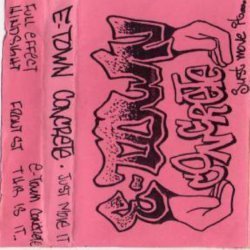 E-TOWN
CONCRETE
Just move it
E-TOWN CONCRETE · JUST MOVE IT
FULL EFFECT
HINDSIGHT
FRONT ST.
THIS IS IT..
E-TOWN CONCRETE